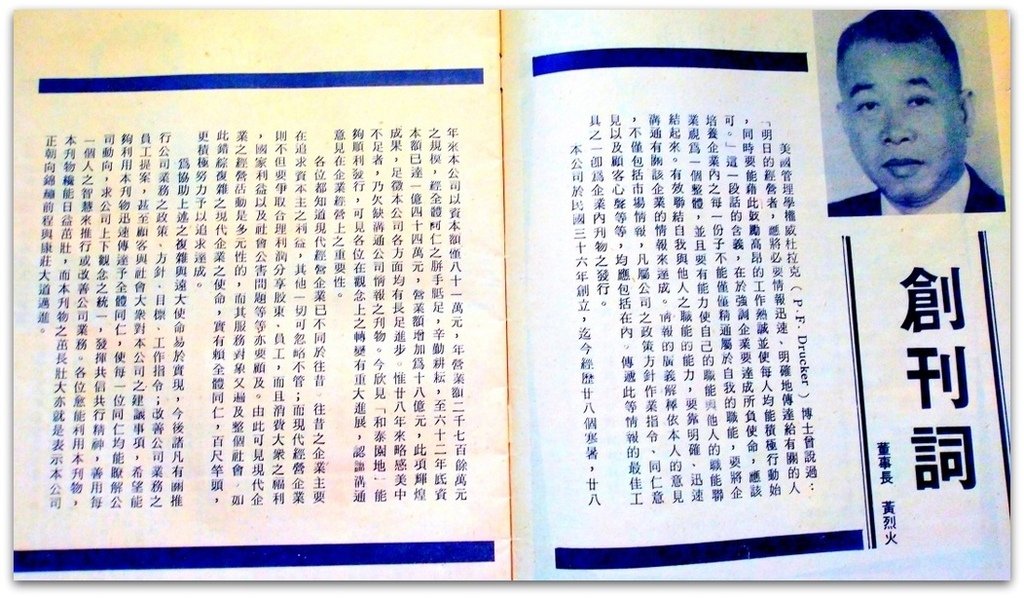 創刊詞
董事長 黃烈火
美國管理學權威杜拉克(P.F. Drucker)博士曾說過:
「明日的經營者,應將必要情報迅速、明確地傳達給有關的人
,同時要能藉此鼓勵高昂的工作熱誠並使每人均能積極行動始
可。」這一段話的含義,在於強調企業要達成所負使命,應該
培養企業內之每一份子不能僅僅精通屬於自我的職能,要將企
業視為一個整體,並且要有能力使自己的職能與他人的職能聯
結起來。有效聯結自我與他人之職能的能力,要靠明確、迅速
溝通有關該企業的情報來達成。情報的廣義解釋依本人的意見
,不僅包括市場情報,凡屬公司之政策方針作業指令、同仁意
見以及顧客心聲等等,均應包括在內。傳遞此等情報的最佳工
具之一即為企業內刊物之發行。
本公司於民國三十六年創立,迄今經歷廿八個寒暑,廿八
年來本公司以資本額僅八十一萬元,年營業額二千七百餘萬元
之規模,經全體同仁之胼手胝足,辛勤耕耘,至六十二年底資
本額已達一億四千四萬元,營業額增加為十八億元,此項輝煌
成果,足徵本公司各方面均有長足進步。惟廿八年來略感美中
不足者,乃欠缺溝通公司情報之刊物。今欣見「和泰園地」能
夠順利發行,可見各位在觀念上之轉變有重大進展,認識溝通
意見在企業經營上之重要性。
各位都知道現代經營企業已不同於往昔,往昔之企業主要
在追求資本主之利益,其他一切可忽略不管;而現代經營企業
則不但要爭取合理利潤分享股東、員工,而且消費大眾之福利
,國家利益以及社會公害問題等等亦要顧及。由此可見現代企
業之經營活動是多元性的,而其服務對象又遍及整個社會。如
此錯綜複雜之現代企業之使命,實有賴全體同仁,百尺竿頭,
更積極努力予以追求達成。
為協助上述之複雜與遠大使命易於實現,今後諸凡有關推
行公司業務之政策、方針、目標、工作指令;改善公司業務之
員工提案,甚至顧客與社會大眾對本公司之建議事項,希望能
夠利用本刊物迅速傳達予全體同仁,使每一位同仁均能瞭解公
司動向,求公司上下觀念之統一,發揮共信共行精神,善用每
一個人之智慧來推行或改善公司業務。各位愈能利用本刊物,
本刊物纔能日益茁壯,而本刊物之茁長壯大亦就是表示本公司
正朝向錦繡前程與康莊大道邁進。